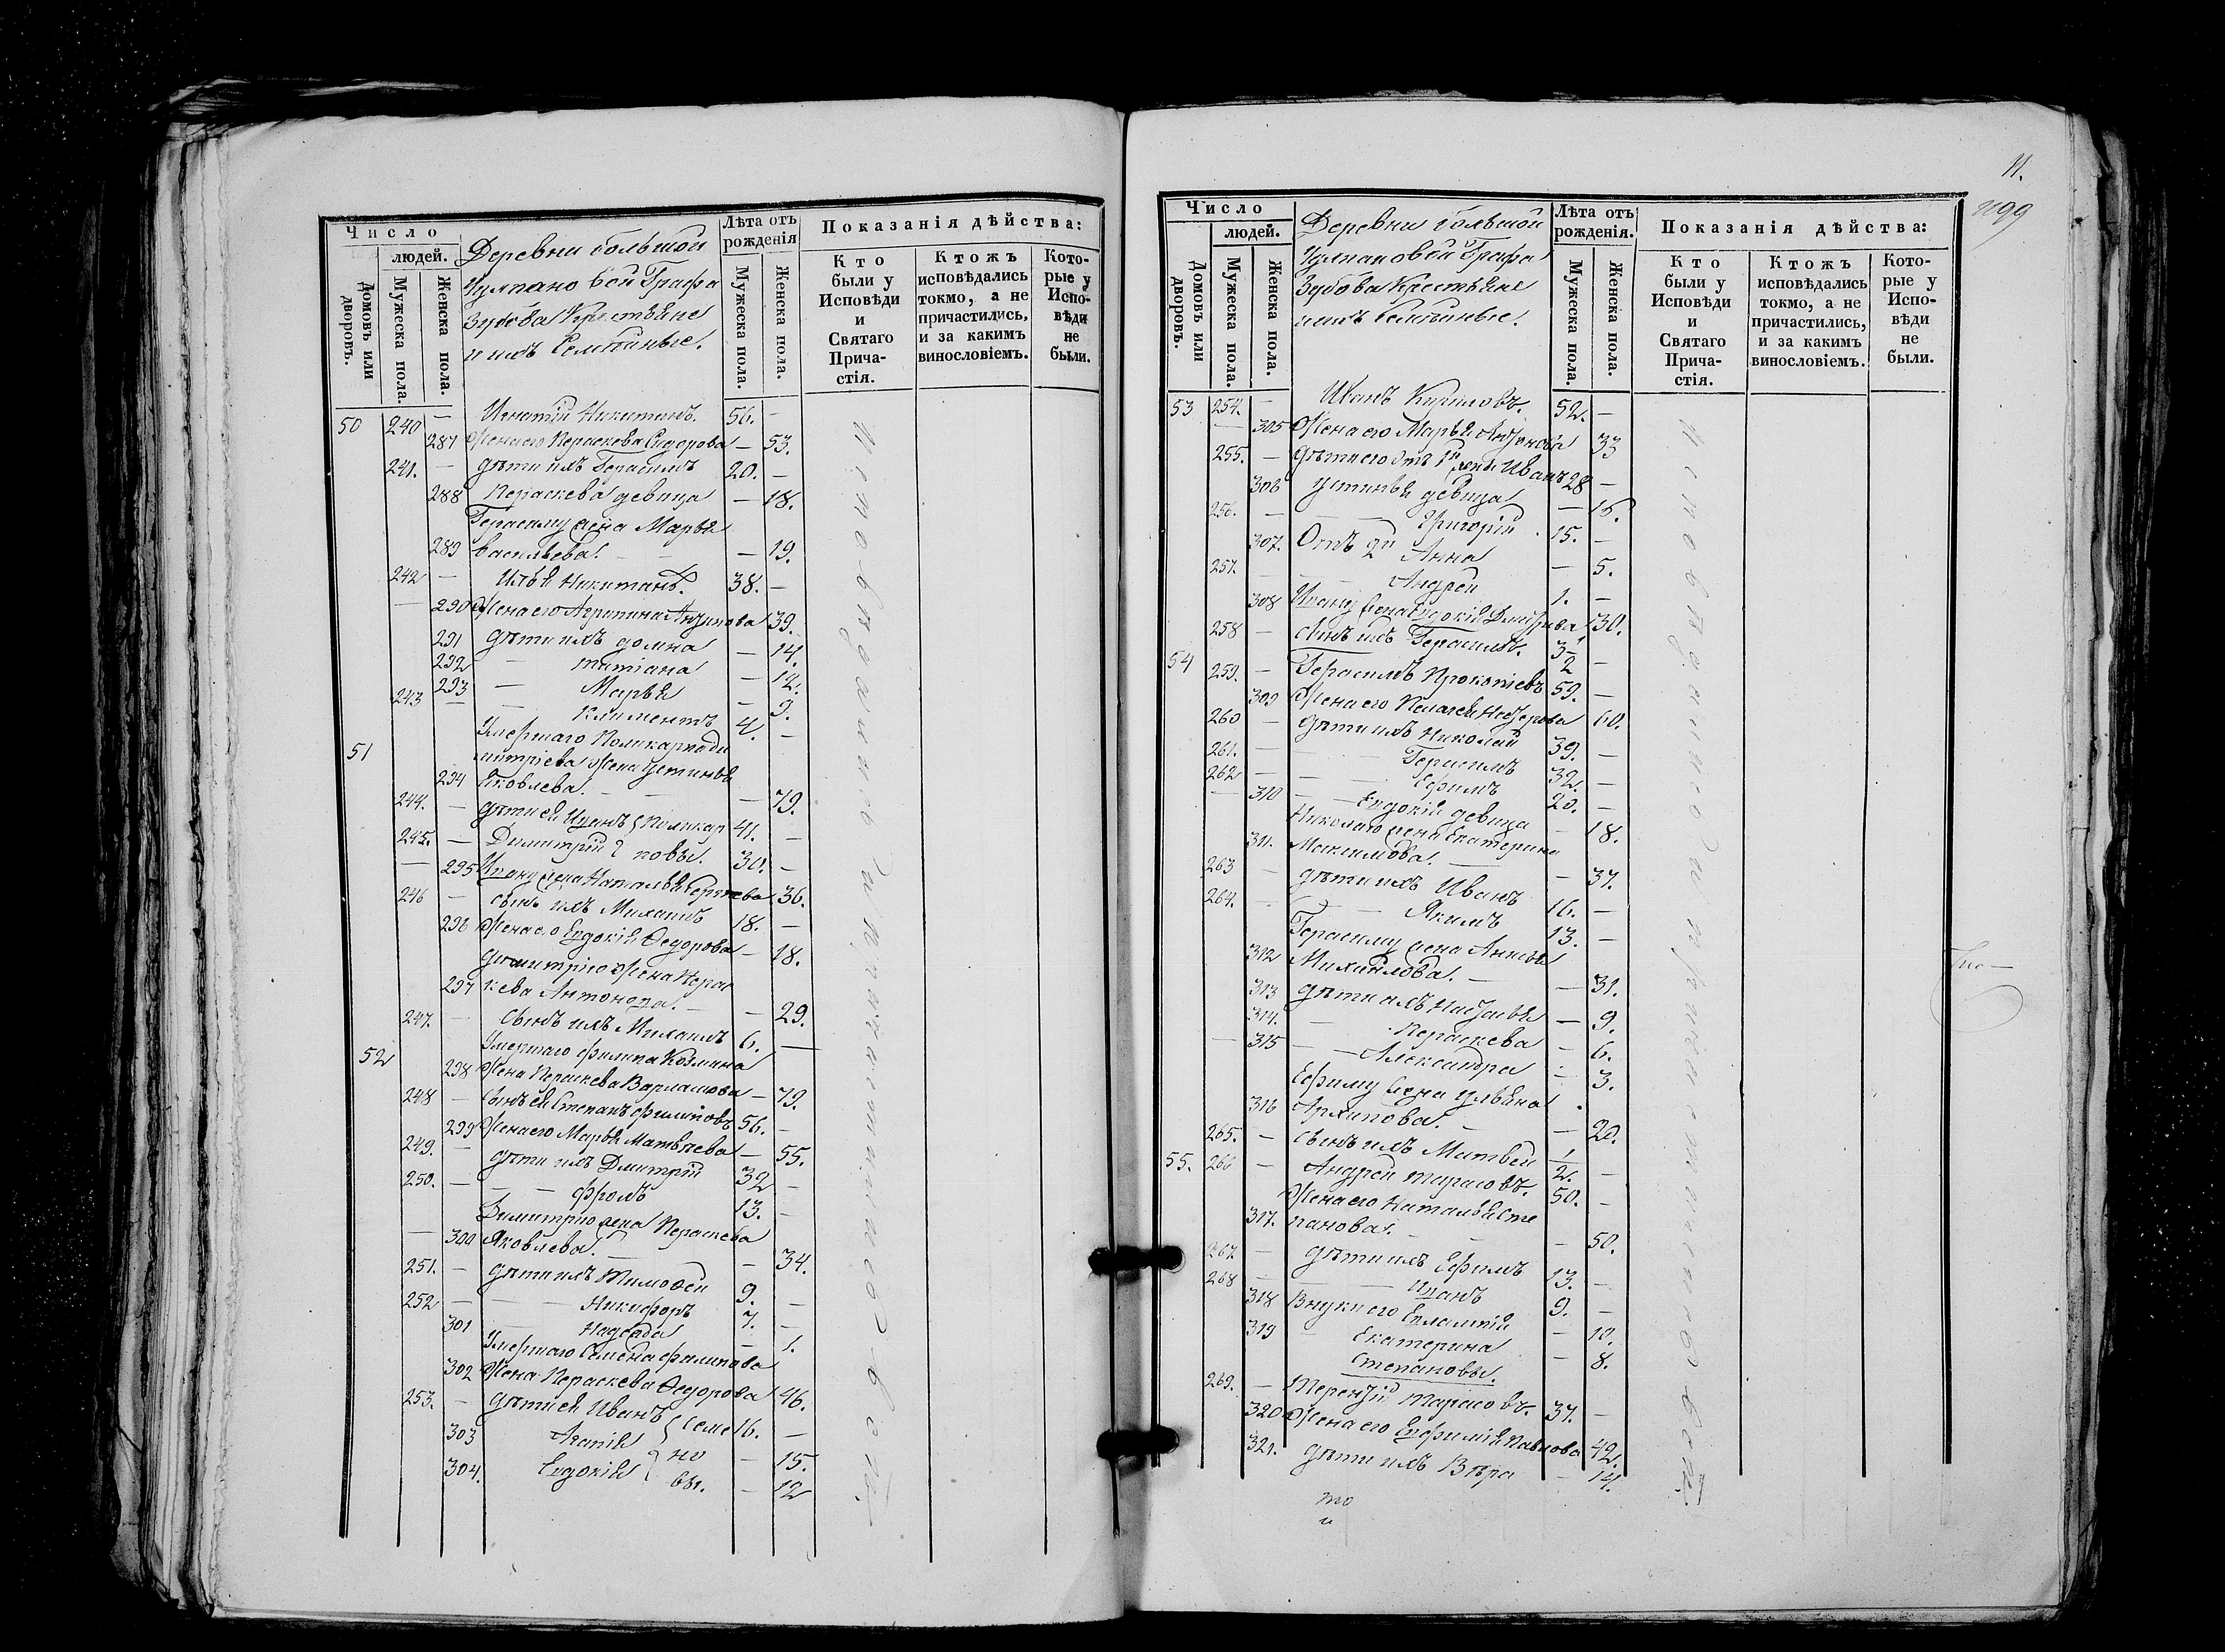 Число
людей.
Домовъ или дворовъ.
Мужеска пола.
Женска пола.
Деревни большой
Чулпановой Графа
Зубова Крестьяне
и ихъ Семейные.
Лѣта отъ рожденія
Мужеска пола.
Женска пола.
Показанія дѣйства:
Кто были у Исповѣди и Святаго Причастія.
Ктожъ исповѣдались токмо, а не причастились, и за какимъ винословіемъ.
Которые у Исповѣди не были.
50 240 — Игнатій Никитинъ. 56. —
287 Жена его Пераскева Сидорова — 53.
241. — дѣти ихъ Герасимъ 20. —
288 Пераскева девица — 18.
Герасиму жена Марья
289 Васильева. — — 19.
242 — Илья Никитинъ. 38. —
— 290 Жена его Агрипина 39.
291 дѣти ихъ домна — 14.
292 — татіана — 12.
293 — Марья — 9.
243 — — Климентъ 4. —
51 Умершаго Поликарпа ди
митріева Жена Устинья
294 Яковлева. — — 79.
244. — дѣти ея Иванъ Поликар 41. —
245. — Димитрій повы. 30. —
— 295 Ивану жена Наталья 36.
246 — сынъ ихъ Михаилъ 18. —
296 Жена его Евдокія Ѳедорова — 18.
димитрію Жена Перас
297 кева Антонова. — — 29.
247. — сынъ ихъ Михаилъ 6. —
52 Умершаго филипа Козмина
298 Жена Пераскева Варламова — 79.
248 — Сынъ ея Степанъ филиповъ 56. —
299 Жена его Марья Матвѣева — 55.
249. — дѣти ихъ Дмитрій 32 —
250. — — — фролъ 13. —
Димитрію жена Пераскева
— 300 Яковлева. — — 34.
251. — дѣти ихъ Тимоѳей 9. —
252 — — Никифоръ 7. —
301 — Надежда — 1.
Умершаго Семена филипова
302 Жена Пераскева Ѳедорова 46.
253. — дѣти ея Иванъ Семе 16. —
303 Агапія но — 15.
304. Евдокія вы. — 12
Исповѣдались и причастились всѣ.
11.
1199
Число
людей.
Домовъ или дворовъ.
Мужеска пола.
Женска пола.
Деревни большой
Чулпановой Графа
Зубова Крестьяне
и ихъ Семейные.
Лѣта отъ рожденія.
Мужеска пола.
Женска пола.
Показанія дѣйства:
Кто были у Исповѣди и Святаго Причастія.
Ктожъ исповѣдались токмо, а не причастились, и за какимъ винословіемъ.
Которые у Исповѣди не были.
53 254. — Иванъ Кириловъ. 52. —
— 305 Жена его Марья Антонова 33
255. — дѣти его отъ 1й жены Иванъ 28 —
306 устинья девица — 16.
256. — — Григорій 15. —
307. Отъ 2й Анна — 5.
257. — — Андрей 1. —
308 Ивану жена Евдокія 30.
258 — сынъ ихъ Герасимъ. 3
54 259. — Герасимъ Прокопіевъ 59. —
309 Жена его Пелагея 60.
260 — дѣти ихъ Николай 39. —
261. — Герасимъ 32. —
262 — — Ефимъ 20. —
— 310 — Евдокія девица — 18.
Николаю жена Екатерина
311. Максимова. — — 37.
263 — дѣти ихъ Иванъ 16. —
264. — — Якимъ 13. —
Герасиму жена Анисья
312 Михайлова. — — 31.
313 дѣти ихъ Настасья — 9.
314. — Пераскева — 6.
— 315 — Александра — 3.
Ефиму Жена ульяна
316 Архипова. — — 20.
265. — сынъ ихъ Матвей 1/2. —
55. 266 — Андрей тарасовъ. 50. —
Жена его Наталья Сте
317. панова. — — 50.
267 — дѣти ихъ Ефимъ 13. —
268 — — Иванъ 9. —
318 Внуки его Евлампія — 10.
319 — Екатерина — 8.
Степановы.
269. — Терентій Тарасовъ. 37. —
320 Жена его Евфимія Павлова 42.
321. дѣти ихъ Вѣра — 14.
Исповѣдались и причастились всѣ.